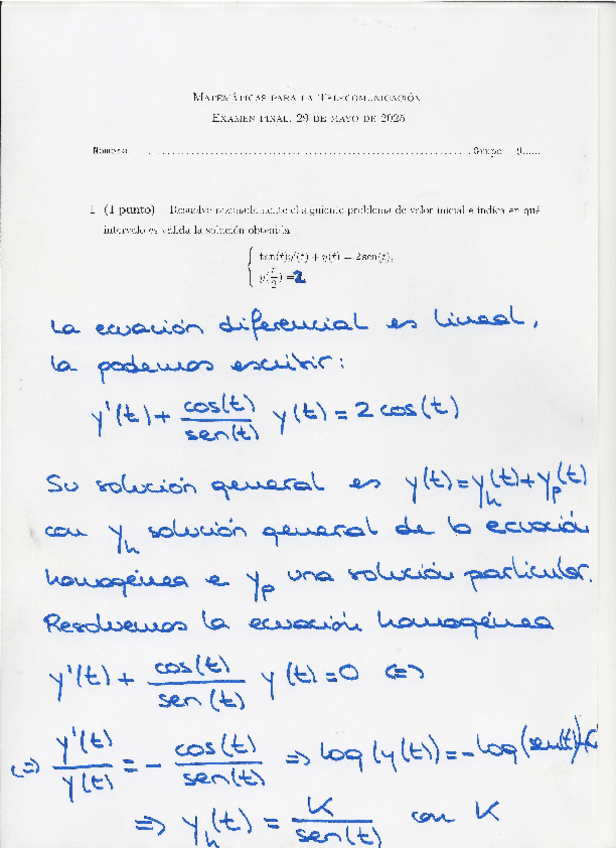 MATEMÁTICAS PARA LA TELECOMUNICACIÓN
EXAMEN FINAL. 29 DE MAYO DE 2025
Nombre ................ Grupo 9......
1 (1 punto) Resuelve razonadamente el siguiente problema de valor inicial e indica en qué
intervalo es válida la solución obtenida
{ tan(t)y'(t) + y(t) = 2sen(t),
y(π/2) = 2
La ecuación diferencial es lineal,
la podemos escribir:
y'(t) + cos(t)/sen(t) y(t) = 2 cos(t)
Su solución general es y(t) = y_h(t) + y_p(t)
con y_h solución general de la ecuación
homogénea e y_p una solución particular.
Resolvemos la ecuación homogénea
y'(t) + cos(t)/sen(t) y(t) = 0 <=>
<=> y'(t)/y(t) = - cos(t)/sen(t) => log(y(t)) = -log(sen(t))+C
=> y_h(t) = K/sen(t) con K